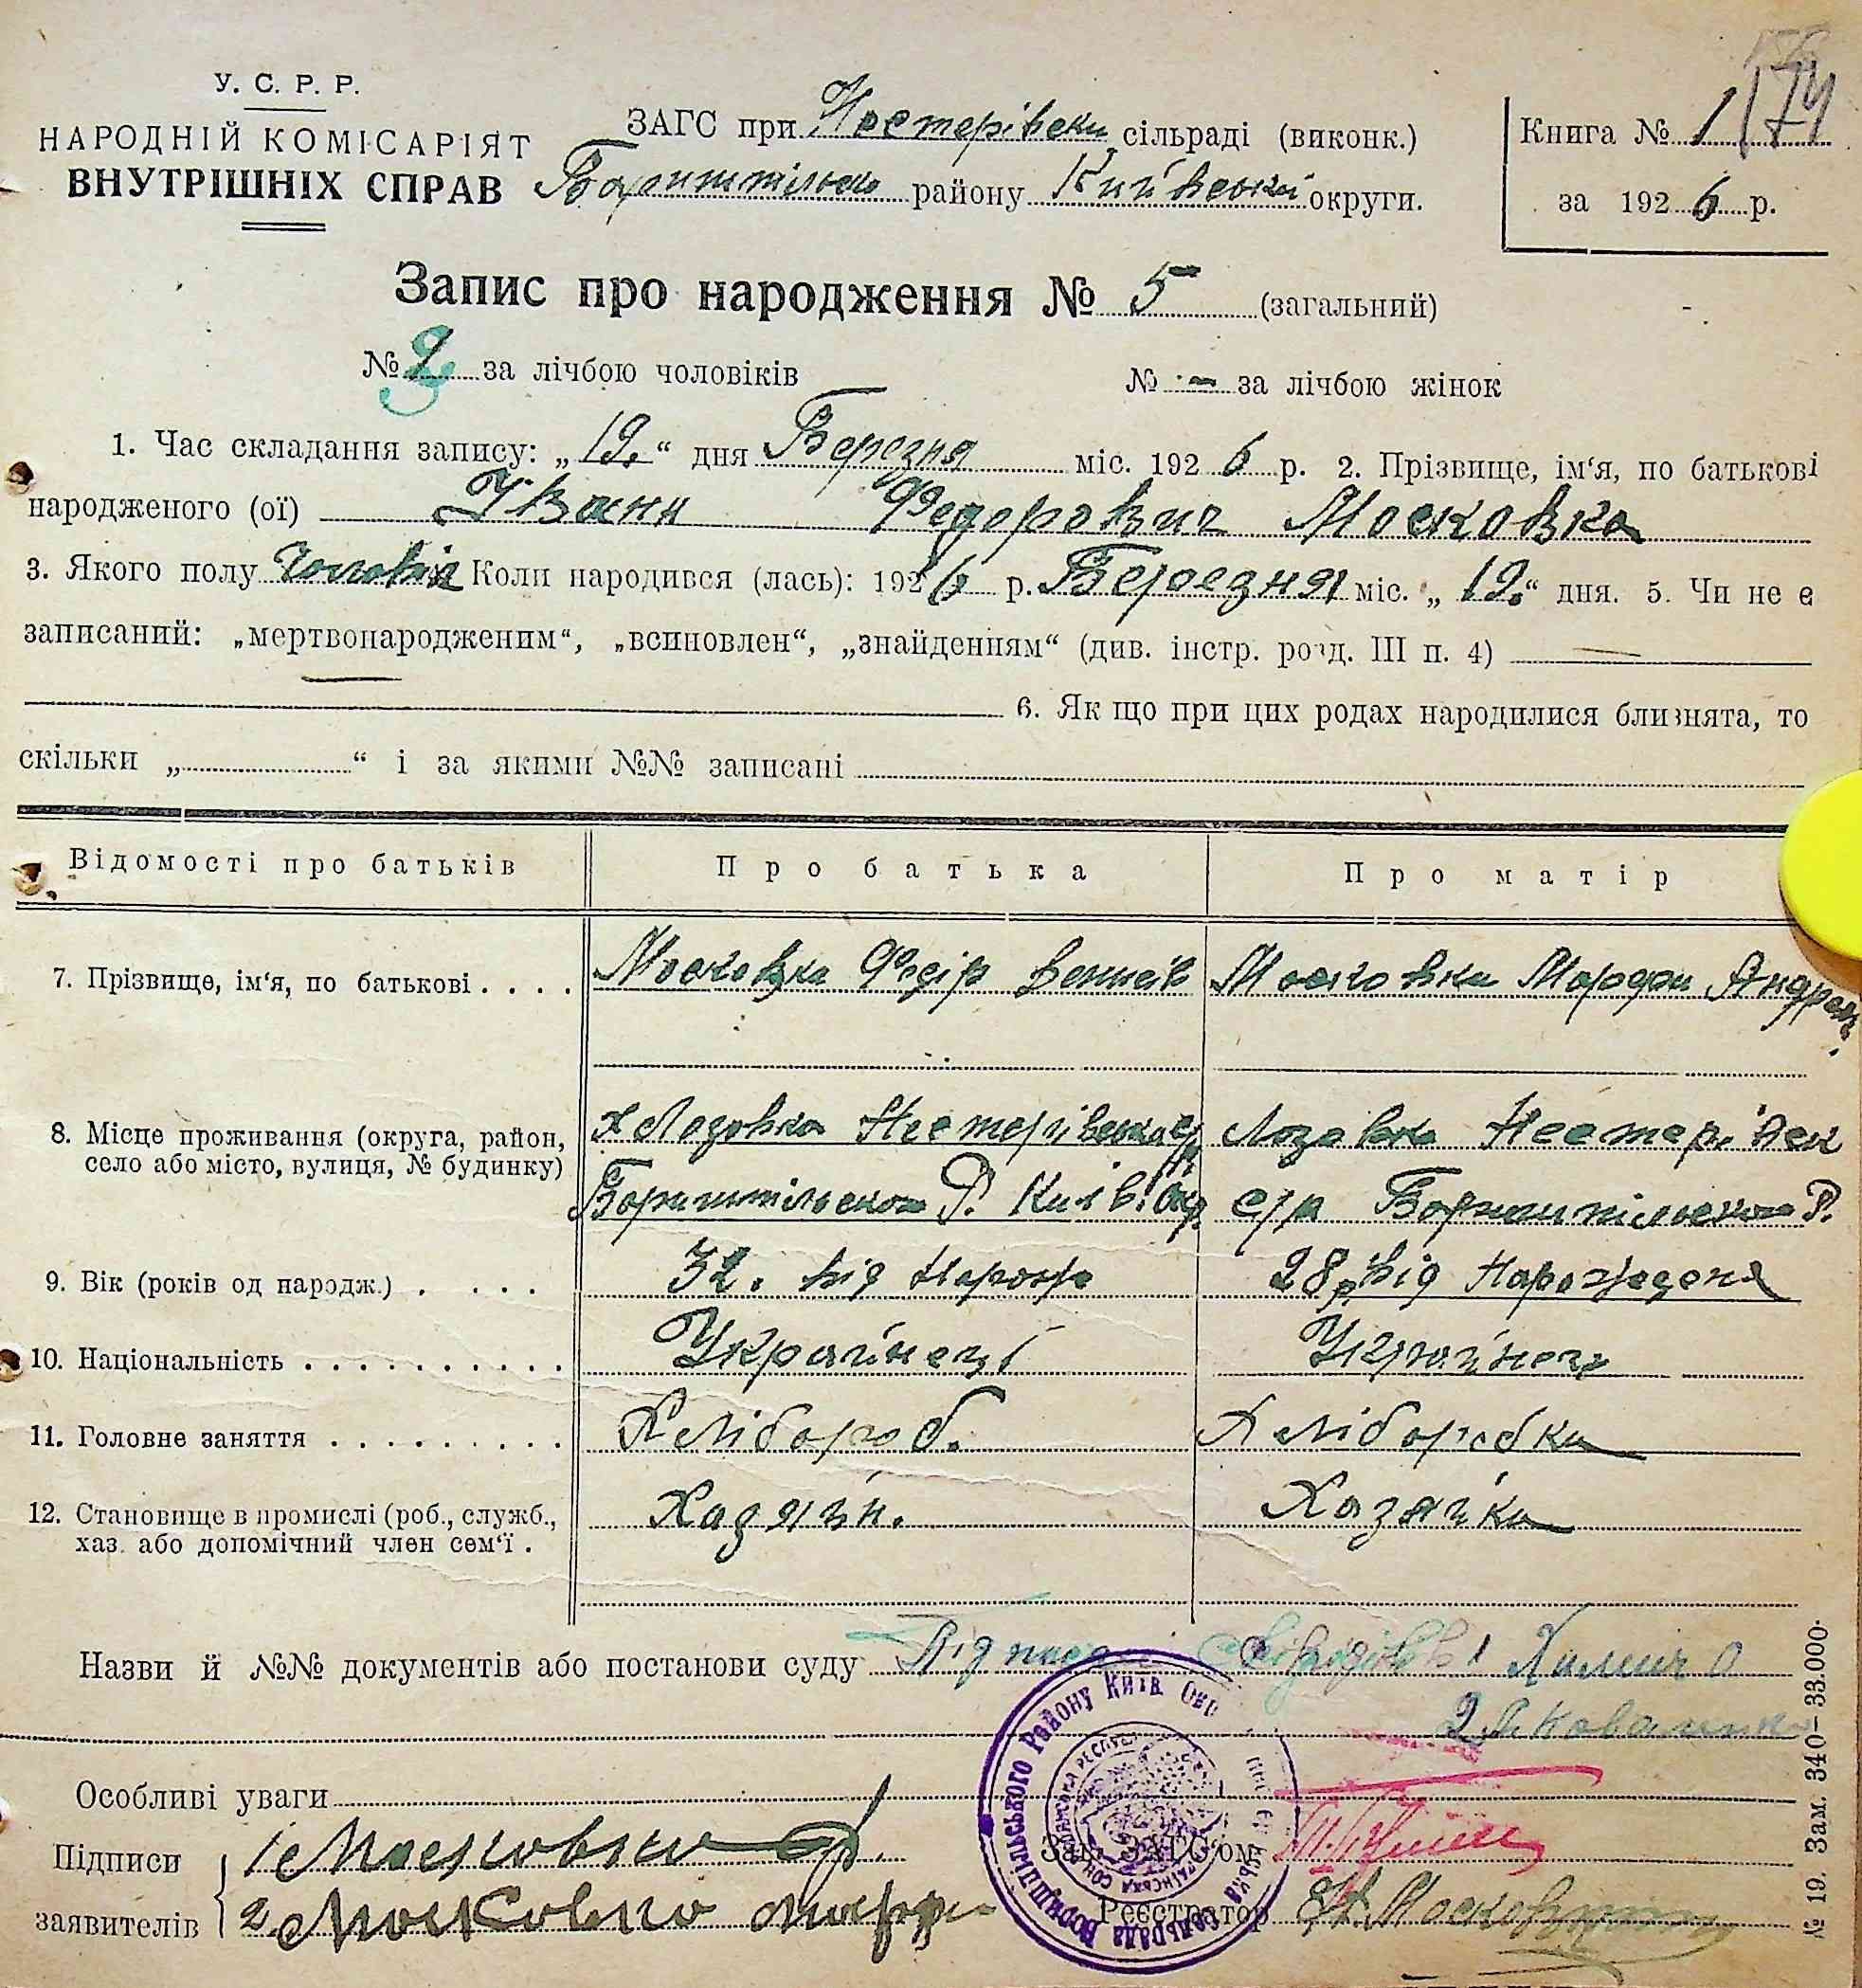 174
У. С. Р. Р.
НАРОДНІЙ КОМІСАРІЯТ
ВНУТРІШНІХ СПРАВ
ЗАГС при Нестерівськ сільраді (виконк.)
Баришпільськ району Київської округи.
Книга № 1
за 1926 р.
Запис про народження № 5 (загальний)
№ 3 за лічбою чоловіків № - за лічбою жінок
1. Час складання запису: „19.“ дня Березня міс. 1926 р. 2. Прізвище, ім‘я, по батькові
народженого (ої) Іванн Федорович Московка
3. Якого полу Чоловік Коли народився (лась): 1926 р. Береезня міс. „19.“ дня. 5. Чи не є
записаний: „мертвонародженим“, „всиновлен“, „знайденням“ (див. інстр. розд. III п. 4)
6. Як що при цих родах народилися близнята, то
скільки „ “ і за якими №№ записані
Відомості про батьків Про батька Про матір
7. Прізвище, ім‘я, по батькові Московка Федір Московка Марфа Андреев
8. Місце проживання (округа, район, село або місто, вулиця, № будинку) х Лозовка Нестерівської Лозовка Нестерівськ
Баришпільского Р. Київ. Окр. с/р Баришпільского Р.
9. Вік (років од народж.) 32. від Нарож 28 р. від Нарождення
10. Національність Українець Українець
11. Головне заняття Хлібороб. Хліборобка
12. Становище в промислі (роб., служб., хаз. або допомічний член сем‘ї. Хазяін. Хазяйка
Назви й №№ документів або постанови суду Підписа свідків 1 Хименко
2 Яковенко
Особливі уваги
Підписи заявителів 1 Московка Ф.
2 Московка Марфа
Зав. ЗАГС‘ом
Реєстратор Московка
№ 19. Зам. 340—33.000.
Бориспільського Району Київ. Окр.